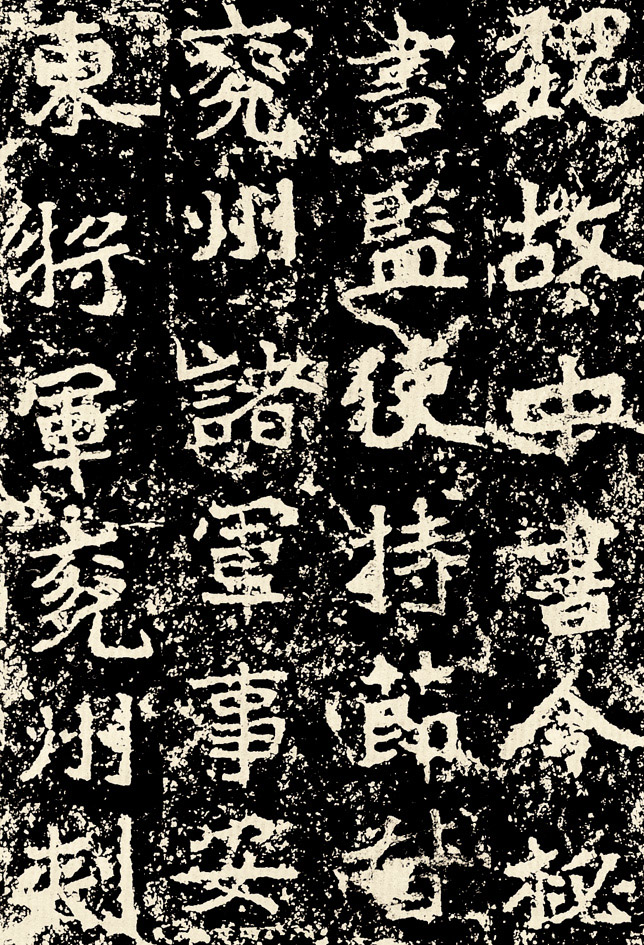 魏故中書令秘
書監使持節督
兗州諸軍事安
東將軍兗州刺